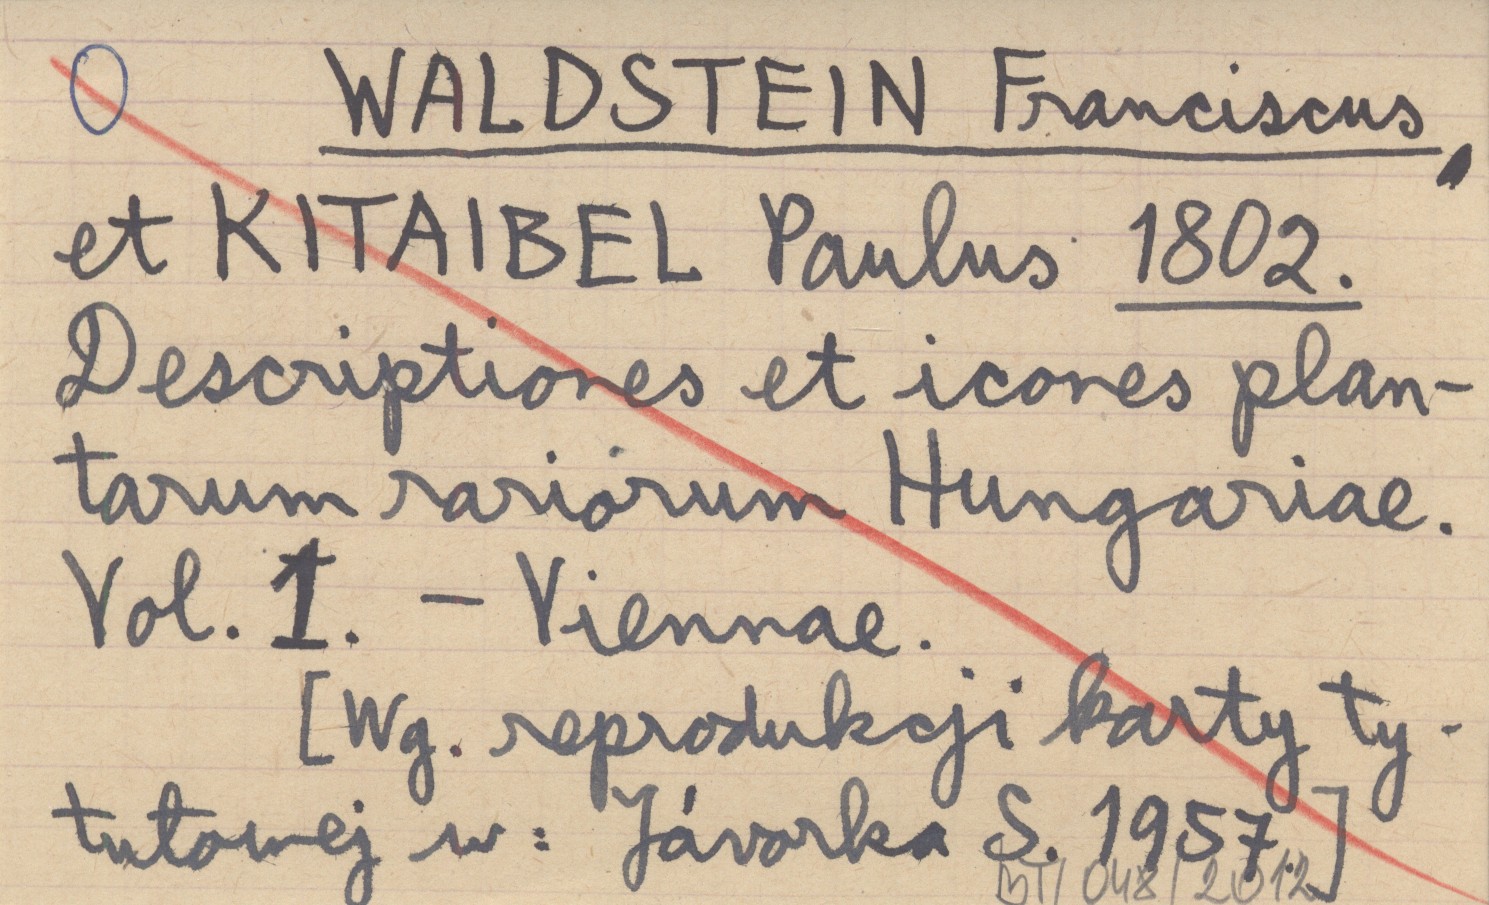 WALDSTEIN Franciscus,
et KITAIBEL Paulus 1802.
Descriptiones et icones plan-
tarum rariorum Hungariae.
Vol. 1. – Viennae.
[Wg. reprodukcji karty ty-
tułowej w: Jávorka S. 1957.]
BT/048/2012